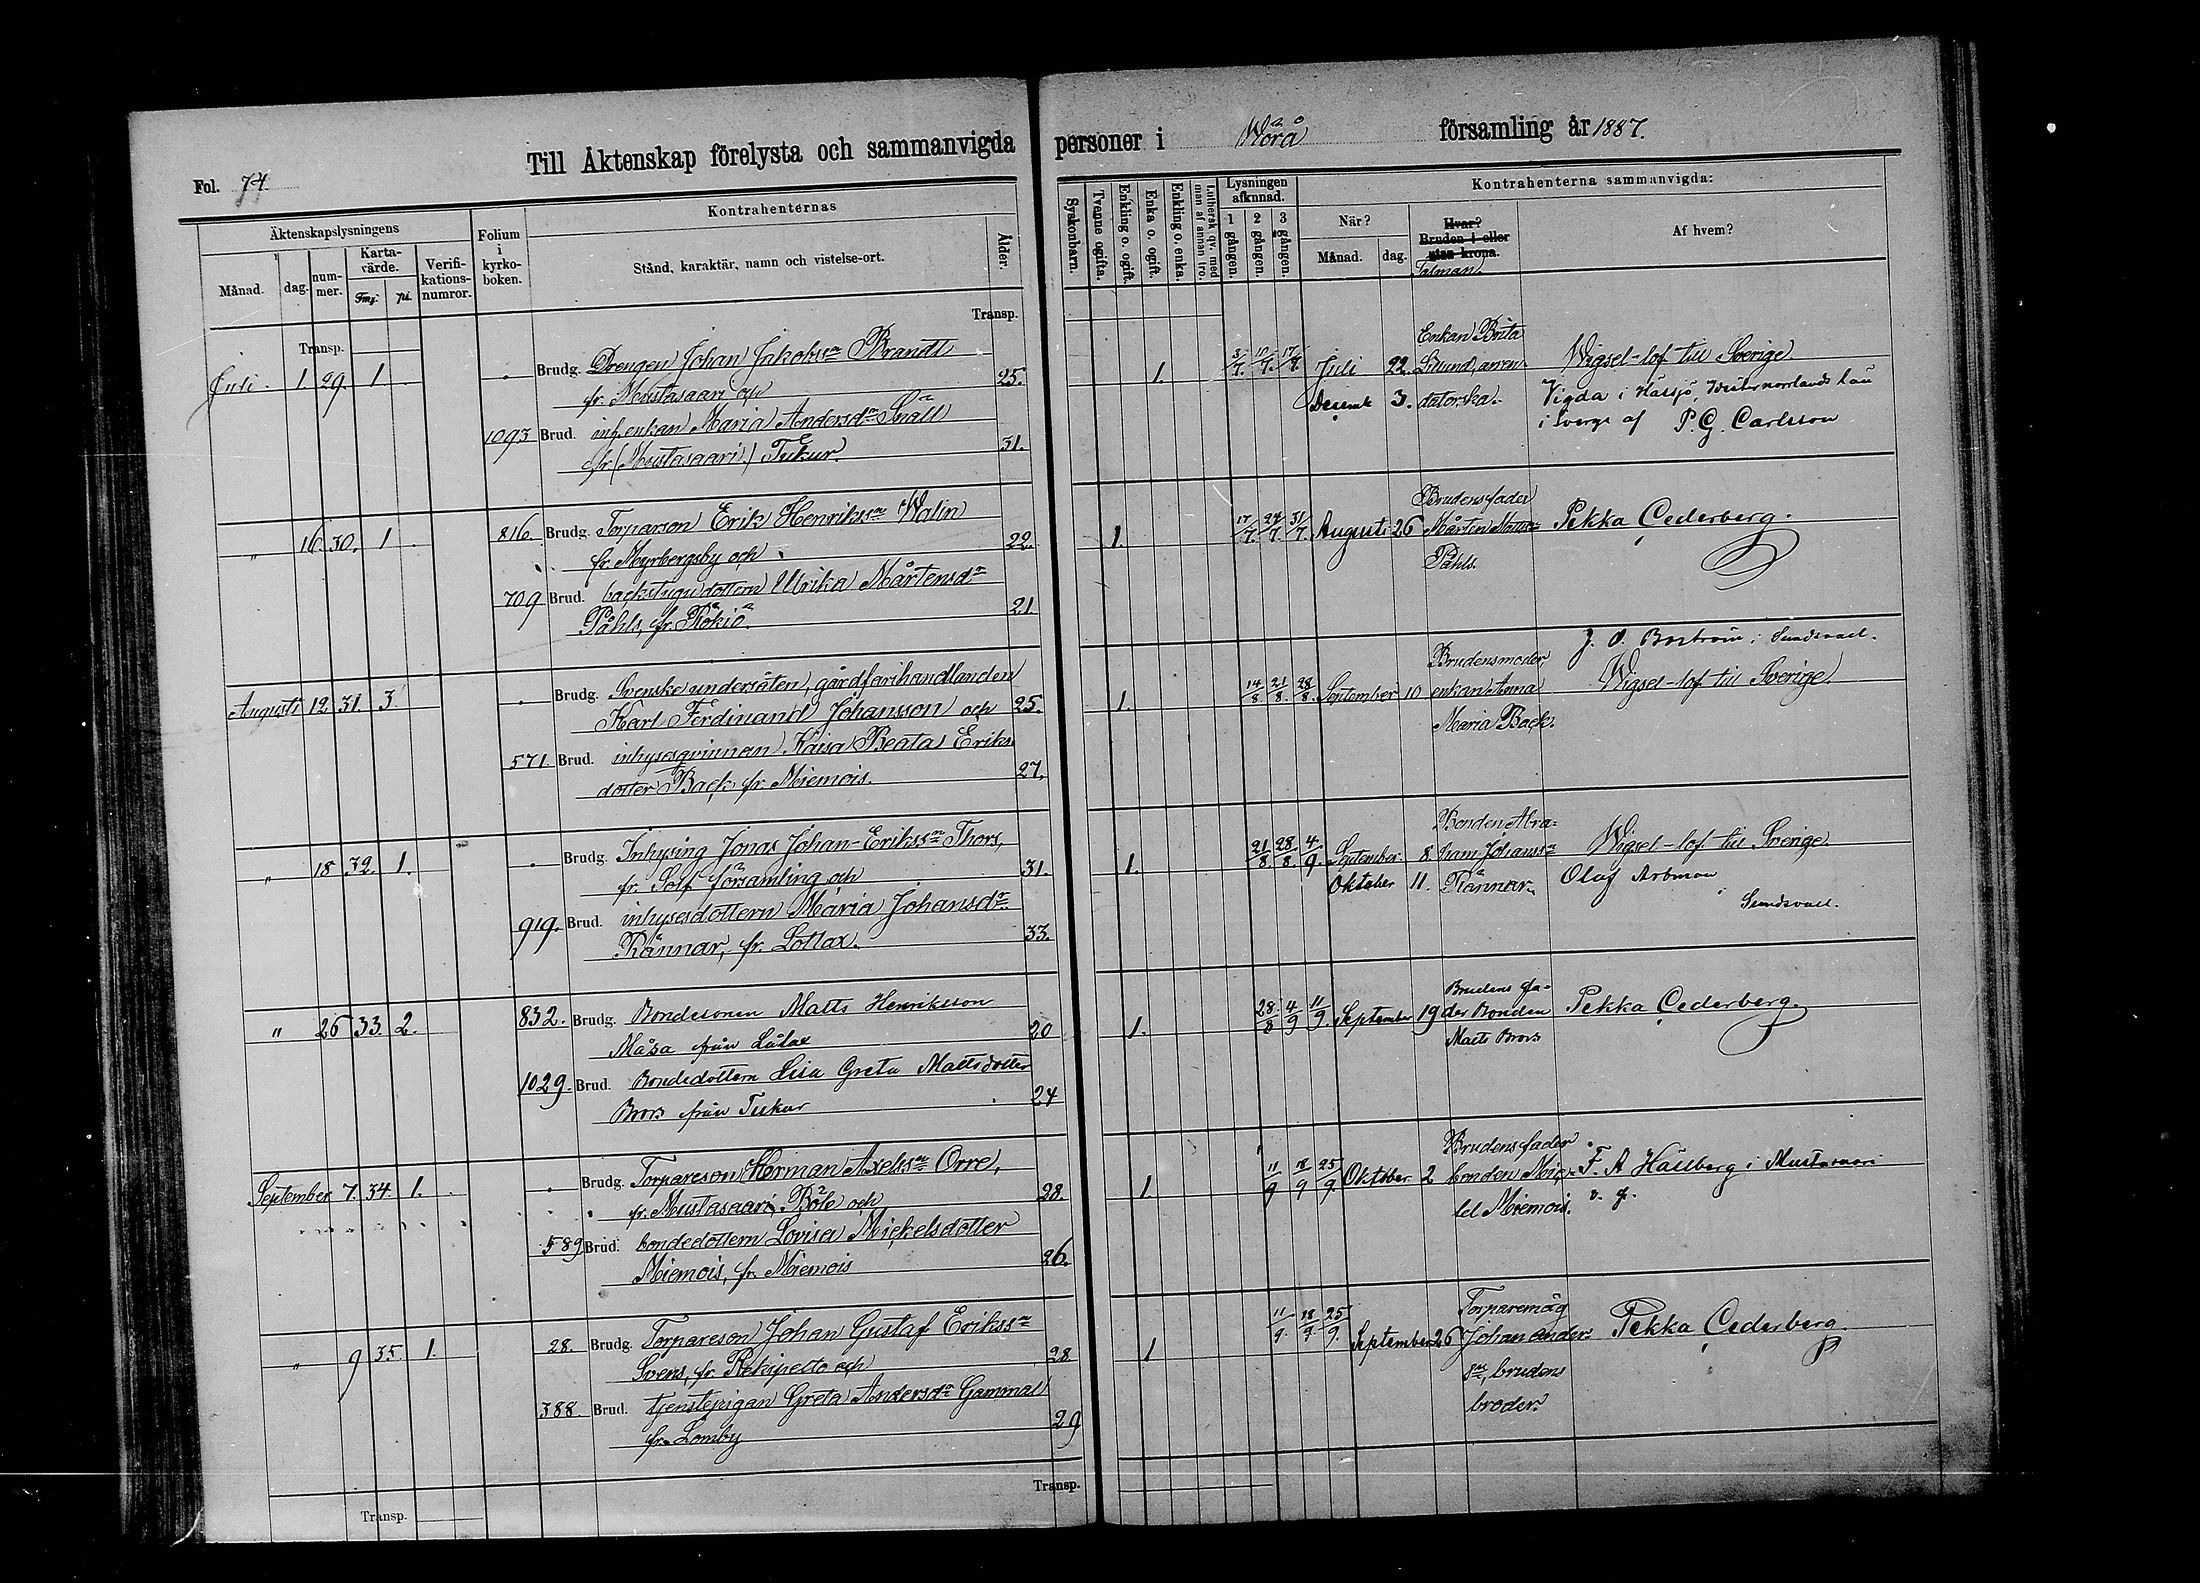 Till Äktenskap förelysta och sammanvigda personer i Wörå församling år 1887.
Fol. 74
Äktenskapslysningens
Månad. dag. nummer. Karta-värde. Fmg. pi. Verifikations-numror.
Folium i kyrko-boken.
Kontrahenternas
Stånd, karaktär, namn och vistelse-ort.
Ålder.
Syskonbarn.
Tvenne ogifta.
Enkling o. ogift.
Enka o. ogift.
Enkling o. enka.
Luthersk qv. med man af annan tro.
Lysningen afkunnad.
1 gången. 2 gången. 3 gången.
Kontrahenterna sammanvigda:
När?
Månad. dag.
Hvar?
Bruden i eller
utan krona.
Talman.
Af hvem?
Transp. Transp.
Juli 1 29. 1 Brudg. Drengen Johan Jakobsson Brandt
fr. Mustasaari och 25.
1093 Brud. inh. enkan Maria Andersdr Snåll
fr. (Mustasaari) Tukur. 31.
1. 3/7. 10/7. 17/7. Juli 22.
Decemb 3.
Enkan Brita
datorska.
Wigsel-lof till Sverige
Vigda i Hässjö, Westernorrlands län
i Sverge af P. G. Carlsson
" 16. 30. 1 816. Brudg. Torparson Erik Henrikssn Walin
fr. Myrbergsby och 22.
709 Brud. backstugudottern Ulrika Mårtensdr
Påhls, fr. Rökiö. 21.
1. 17/7. 24/7. 31/7. Augusti 26
Brudens fader
Mårten Matts:
Påhls.
Pekka Cederberg.
Augusti 12 31. 3 Brudg. Svenske undersåten, gårdfarihandlanden
Karl Ferdinand Johansson och 25.
571. Brud. inhysesqvinnan Kaisa Beata Eriks
dotter Back fr. Miemois. 27.
1. 14/8. 21/8. 28/8. September 10
Brudens moder
enkan Anna
Maria Back.
J. O. Boström i Sundsvall.
Wigsel-lof till Sverige
" 18 32. 1. Brudg. Inhysing Jonas Johan Erikssn Thors,
fr. Solf församling och 31.
919. Brud. inhysesdottern Maria Johansdr
Rännar, fr. Lottax. 33.
1. 21/8 28/8. 4/9. September 8.
Oktober 11.
Bonden Abra=
ham Johanssn
Rännar.
Wigsel-lof till Sverige
Olof Arbman
i Sundsvall.
" 26 33. 2. 832. Brudg. Bondesonen Matts Henriksson
Måsa från Lålax 20
1029. Brud. Bondedottern Lisa Greta Mattsdotter
Brors från Tukur 24
1. 28/8 4/9 11/9. September 19
Brudens fa-
der Bonden
Matts Brors
Pekka Cederberg.
September 7. 34. 1. Brudg. Torpareson Herman Axelssn Orre,
fr. Mustasaari, Böle och 28.
589 Brud. bondedottern Lovisa Mickelsdotter
Miemois, fr. Miemois 26.
1. 11/9 18/9 25/9. Oktober 2
Brudens fader
bonden Mic=
kel Miemois.
F. A Hällberg i Mustasaari
v. p.
" 9 35. 1. 28. Brudg. Torpareson Johan Gustaf Erikssn
Svens, fr. Rekipelto och 28
388. Brud. tjenstepigan Greta Andersdr Gammal
fr. Lomby 29
1 11/9. 18/9. 25/9. September 26
Torparemåg
Johan Anders
sn, brudens
broder.
Pekka Cederberg.
Transp. Transp.